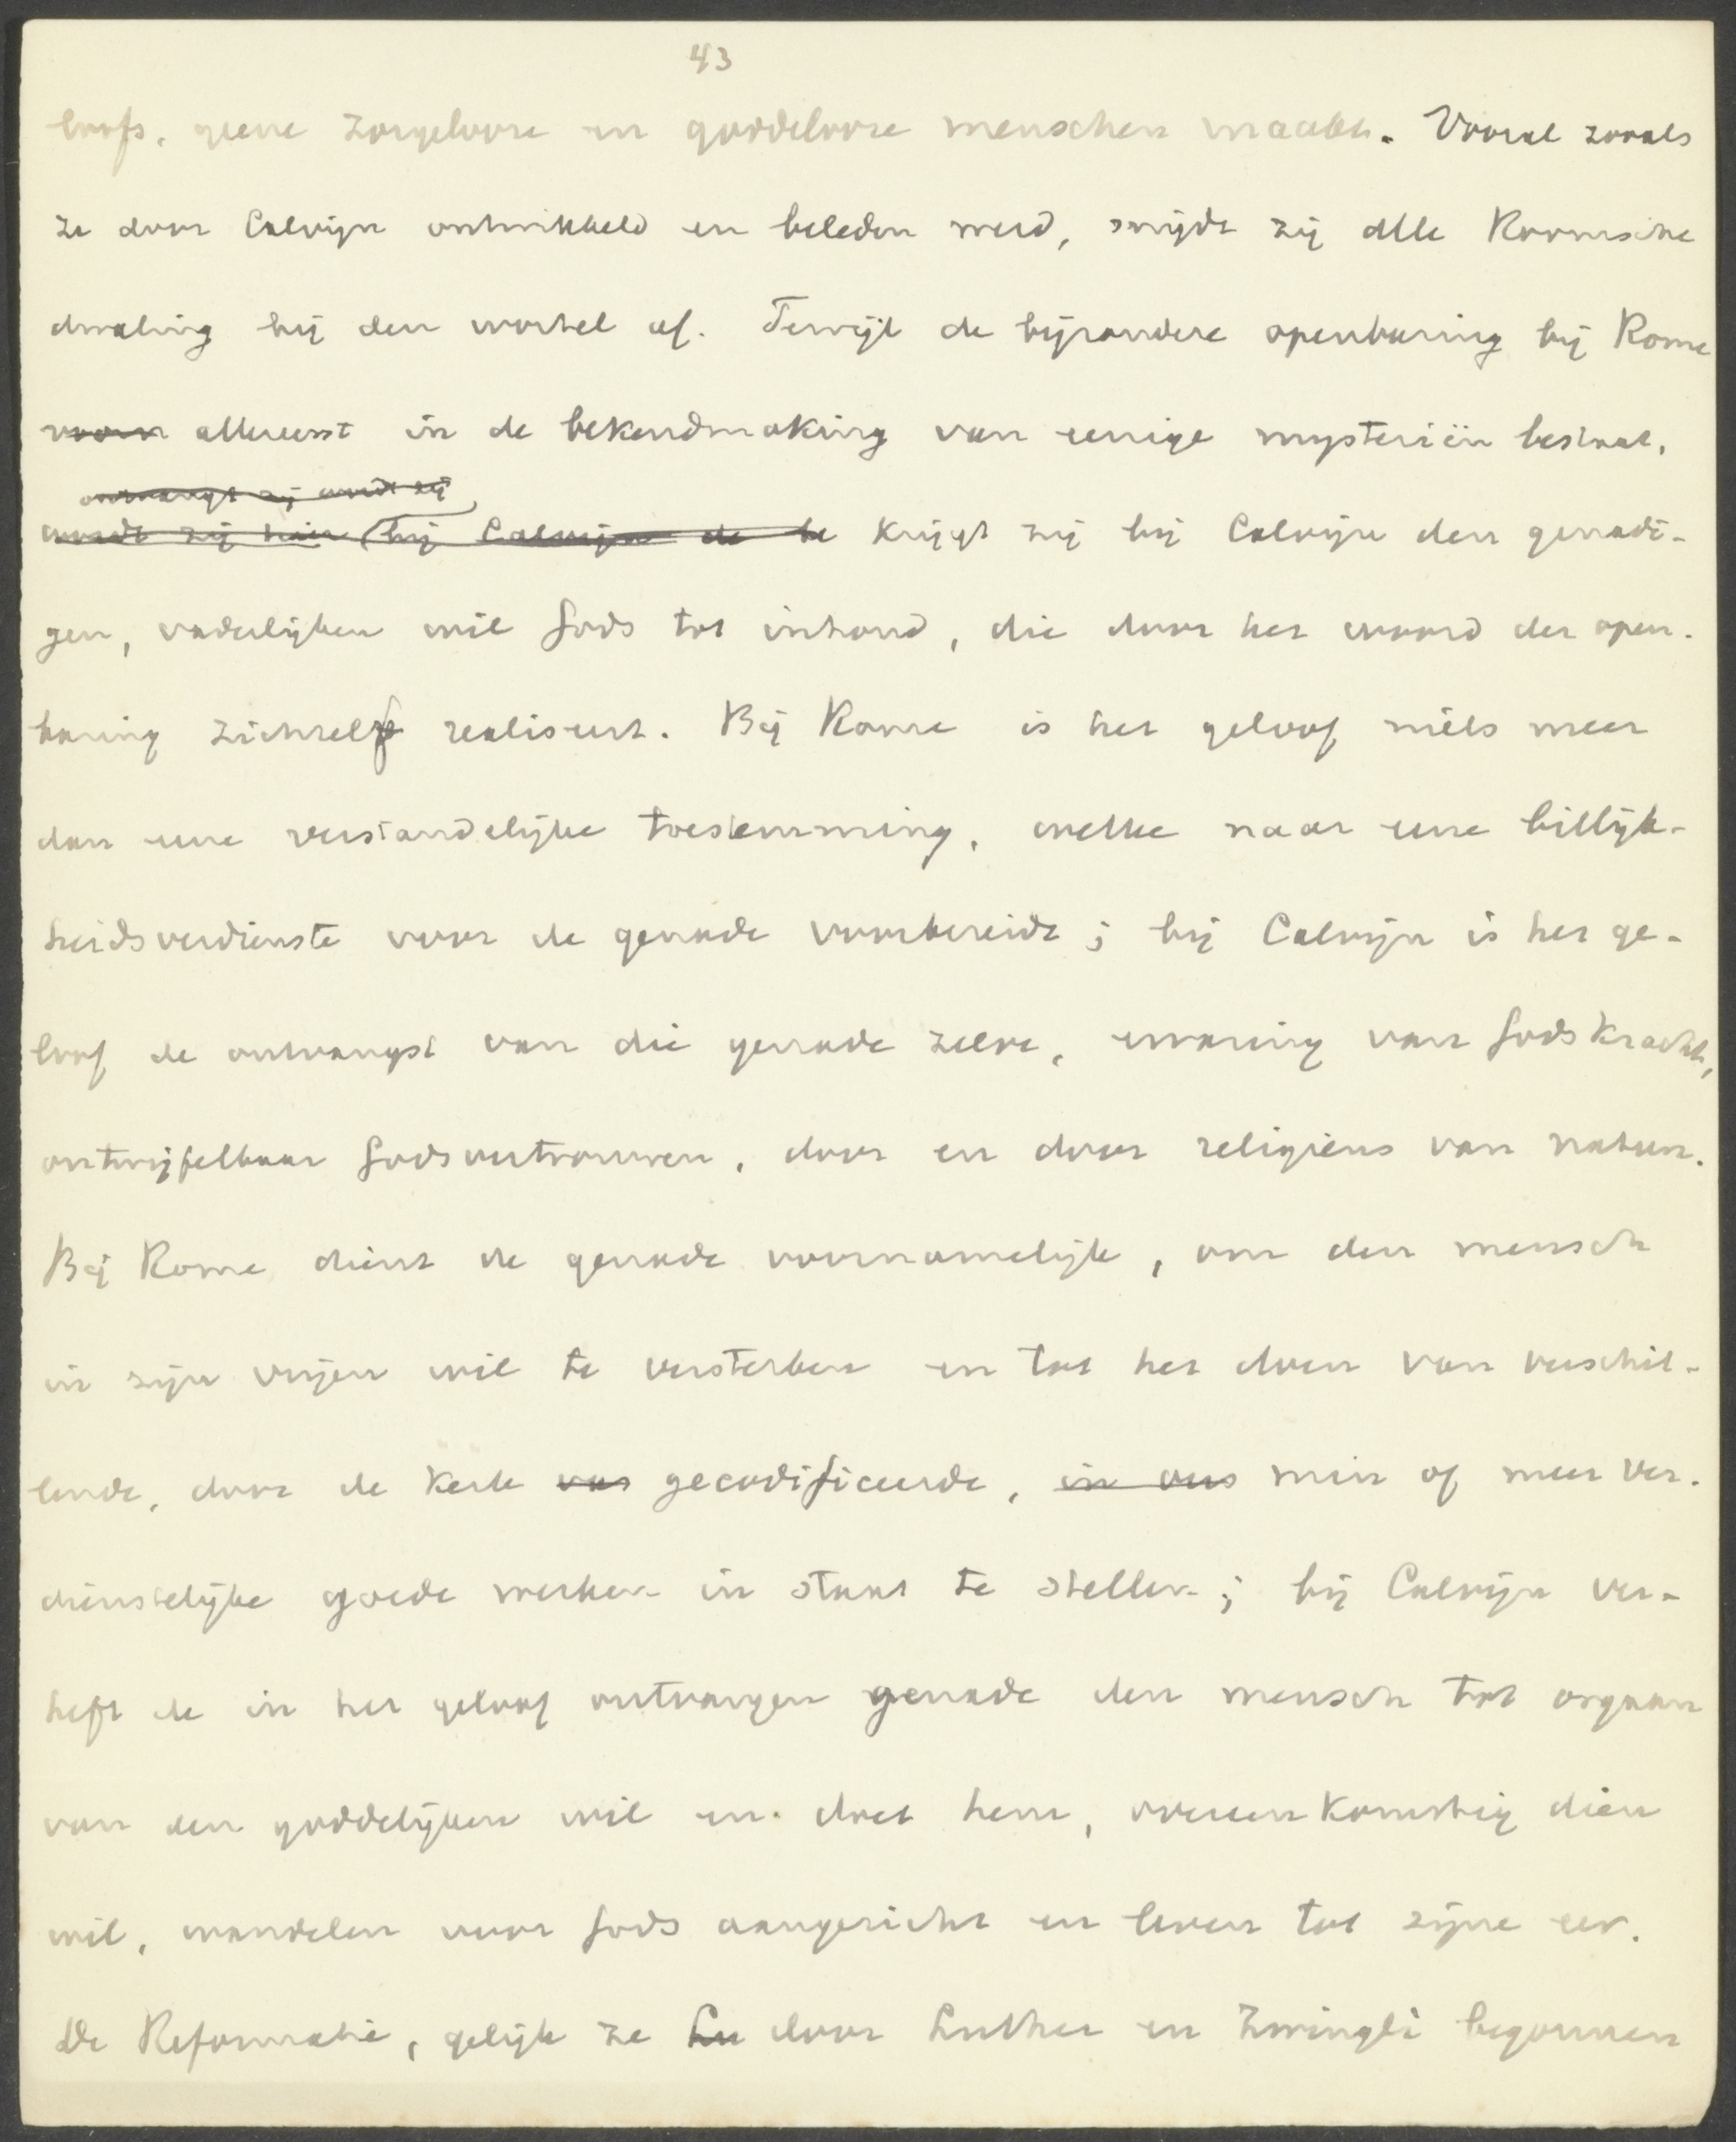 43
loofs, geene zorgelooze en goddelooze menschen maakt. Vooral zooals
ze door Calvijn ontwikkeld en beleden werd, snijdt zij alle Roomsche
dwaling bij den wortel af. Terwijl de bijzondere openbaring bij Rome
allereerst in de bekendmaking van eenige mysteriën bestaat,
ontvangt zij wordt zij
wordt zij hier (bij Calvijn de be krijgt zij bij Calvijn den genadi-
gen, vaderlijken wil Gods tot inhoud, die door het woord der open-
baring zichzelf realiseert. Bij Rome is het geloof niets meer
dan eene verstandelijke toestemming, welke naar eene billijk-
heidsverdienste voor de genade voorbereidt; bij Calvijn is het ge-
loof de ontvangst van die genade zelve, ervaring van Gods kracht,
ontwijfelbaar Godsvertrouwen, door en door religieus van natuur.
Bij Rome dient de genade voornamelijk, om den mensch
in zijn vrijen wil te versterken en tot het doen van verschil-
lende, door de kerk van gecodificeerde, in ons min of meer ver-
dienstelijke goede werken in staat te stellen; bij Calvijn ver-
heft de in het geloof ontvangen genade den mensch tot orgaan
van den goddelijken wil en doet hem, overeenkomstig dien
wil, wandelen voor Gods aangezicht en leven tot zijne eer.
De Reformatie, gelijk ze Lu door Luther en Zwingli begonnen